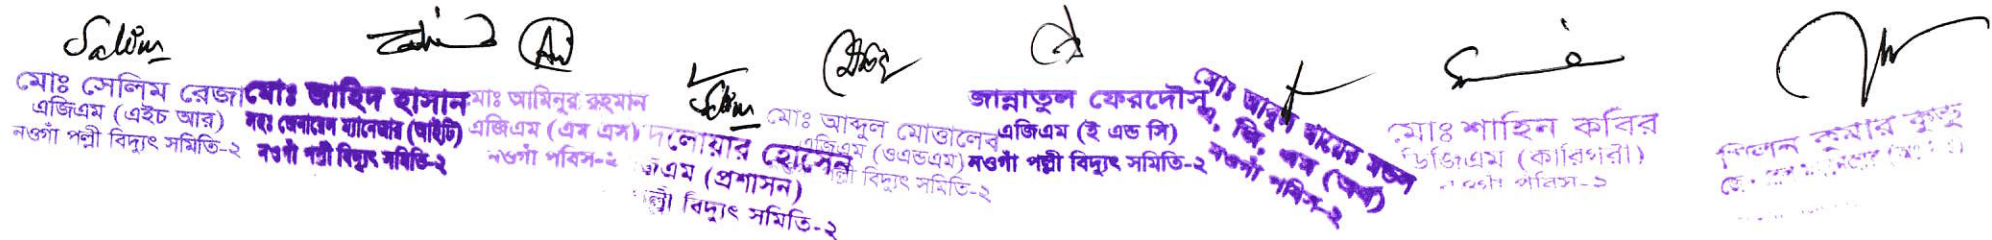 Salim
মোঃ সেলিম রেজা
এজিএম (এইচ আর)
নওগাঁ পল্লী বিদ্যুৎ সমিতি-২
মোঃ জাহিদ হাসান
সহঃ জেনারেল ম্যানেজার (আইটি)
নওগাঁ পল্লী বিদ্যুৎ সমিতি-২
মোঃ আমিনুর রহমান
এজিএম (এম এস)
নওগাঁ পবিস-২
দলোয়ার হোসেন
জিএম (প্রশাসন)
পল্লী বিদ্যুৎ সমিতি-২
মোঃ আব্দুল মোত্তালেব
এজিএম (ওএন্ডএম)
পল্লী বিদ্যুৎ সমিতি-২
জান্নাতুল ফেরদৌস
এজিএম (ই এন্ড সি)
নওগাঁ পল্লী বিদ্যুৎ সমিতি-২
মোঃ আবুল খায়ের মন্ডল
এ. জি. এম (অর্থ)
নওগাঁ পবিস-২
মোঃ শাহিন কবির
ডিজিএম (কারিগরী)
নওগাঁ পবিস-২
মিলন কুমার কুন্ডু